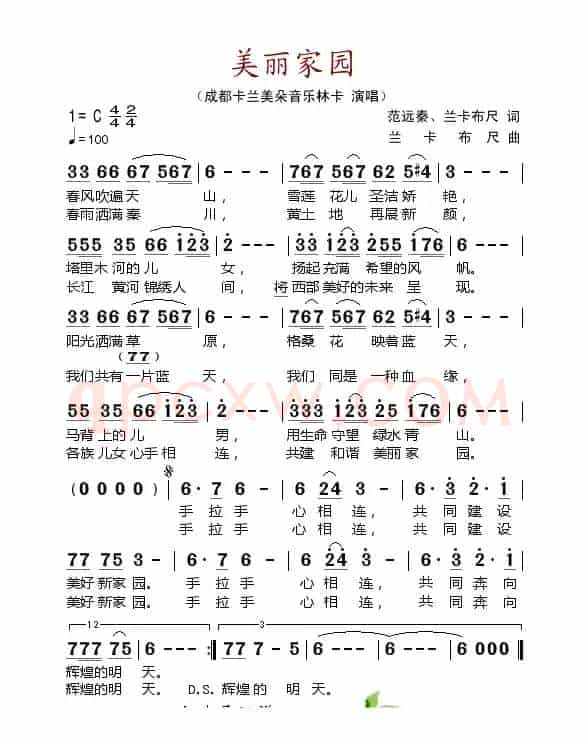 美丽家园
（成都卡兰美朵音乐林卡 演唱）
1= C 4/4 2/4
范远秦、兰卡布尺 词
♩=100
兰 卡 布 尺 曲
33 66 67 567 | 6 - - - | 767 567 62 5#4 | 3 - - - |
春风吹遍天 山， 雪莲 花儿 圣洁娇 艳，
春雨洒满秦 川， 黄土 地 再展新 颜，
555 35 66 123 | 2 - - - | 333 123 255 176 | 6 - - - |
塔里木 河的 儿 女， 扬起充满 希望的风 帆。
长江 黄河 锦绣人 间， 将 西部 美好的未来 呈 现。
33 66 67 567 | 6 - - - | 767 567 62 5#4 | 3 - - - |
阳光洒满草 原， 格桑 花 映着 蓝 天，
(77)
我们共有一片蓝 天， 我们 同是 一种 血 缘，
555 35 66 123 | 2 - - - | 333 123 255 176 | 6 - - - |
马背 上的 儿 男， 用生命 守望 绿水 青 山。
各族 儿女 心手 相 连， 共建 和谐 美丽 家 园。
(0 0 0 0) | 6· 7 6 - | 6 24 3 - | 6· 3 2· 1 |
手 拉 手 心 相 连， 共 同 建 设
手 拉 手 心 相 连， 共 同 建 设
77 75 3 - | 6· 7 6 - | 6 24 3 - | 6· 3 2· 1 |
美好 新家 园。 手 拉 手 心 相 连， 共 同 奔 向
美好 新家 园。 手 拉 手 心 相 连， 共 同 奔 向
12 3
777 75 | 6 - - - :| 77 7 - 5 | 6 - - - | 6 - - - | 6 0 0 0 ||
辉煌的明 天。
辉煌的明 天。 D.S. 辉煌 的 明 天。